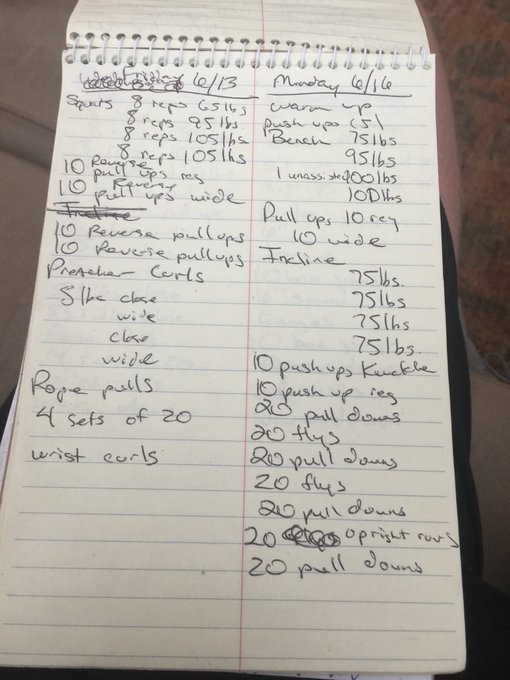 Friday 6/13
Squats 8 reps 65lbs
8 reps 95lbs
8 reps 105lbs
8 reps 105lbs
10 Reverse pull ups reg
10 Reverse pull ups wide
Incline
10 Reverse pull ups
10 Reverse pull ups
Preacher Curls
close
wide
close
wide
Rope pulls
4 sets of 20
wrist curls
Monday 6/16
warm up
push ups (5)
Bench 75lbs
95lbs
1 unassisted 100lbs
100lbs
Pull ups 10 reg
10 wide
Incline
75lbs.
75lbs
75lbs
75lbs.
10 push ups Knuckle
10 push up reg
20 pull downs
20 flys
20 pull downs
20 flys
20 pull downs
20 upright rows
20 pull downs